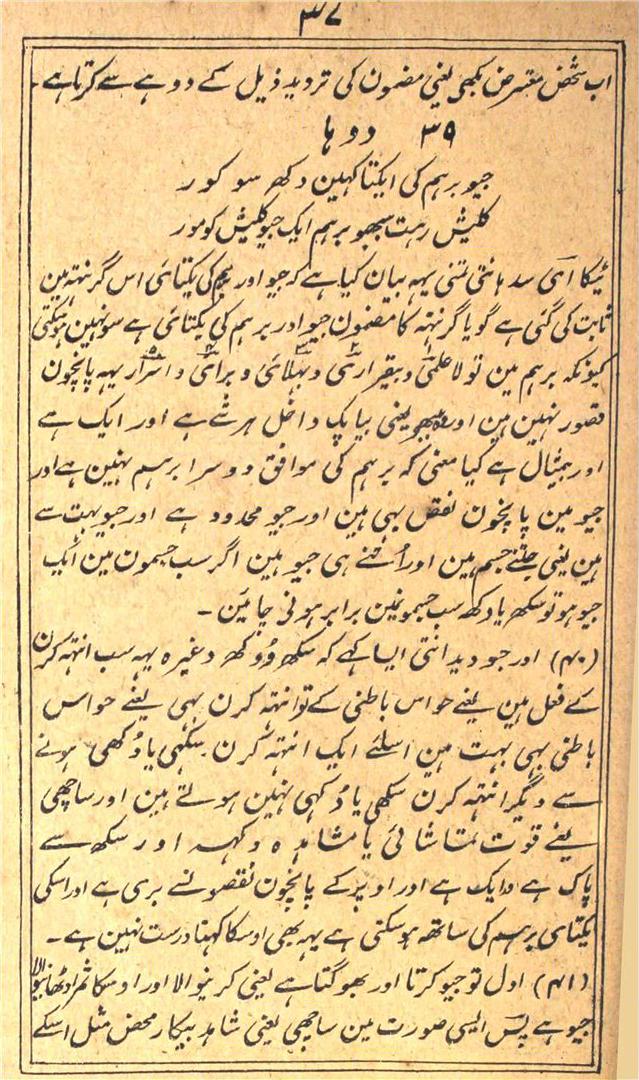 ۳۷
اب شخص معترض بکھی یعنی مضمون کی تردید ذیل کے دوہے سے کرتا ہے۔
۳۹ دوہا
جیو برہم کی ایکتا کہین دکھر سو کور
کلیش رہت سبھو برہم ایک جیو کلیش کو مور
ٹیکا اسی سدہانتی تنی یہہ بیان کیا ہے کہ جیو اور برہم کی یکتائی اس گرنتہہ مین
ثابت کی گئی ہے گویا گرنتہ کا مضمون جیو اور برہم کی یکتائی ہے سو نہین ہو سکتی
کیونکہ برہم مین تو لاعلمی و بیقراری و بہلائی و برائی و اسرار یہہ پانچون
قصور نہین ہین اور وہ بیبھو یعنی بیاپک داخل ہر شے ہے اور ایک ہے
اور بیمثال ہے کیا معنی کہ برہم کی موافق دوسرا برہم نہین ہے اور
جیو مین پانچون نقص بہی ہین اور جیو محدود ہے اور جیو بہت سے
ہین یعنی جتنے جسم ہین اور اُتنے ہی جیو ہین اگر سب جسمون مین ایک
جیو ہو تو سکھ یا دکھ سب جسمونمین برابر ہونی چاہئین ۔
(۴۰) اور جو ویدانتی ایسا کہے کہ سکھ و دُکھ وغیرہ یہہ سب انتہہ کرن
کے فعل ہین یعنے حواس باطنی کے تو انتہہ کرن بہی یعنے حواس
باطنی بہی بہت ہین اسلئے ایک انتہہ کرن سکہی یا دُکھی ہونے
سے دیگر انتہہ کرن سکھی یا دُکہی نہین ہوتے ہین اور ساچھی
یعنے قوت تماشائی یا مشاہدہ دکہہ اور سکھ سے
پاک ہے و ایک ہے اور اوپر کے پانچون نقصونسے بری ہے اور اسکی
یکتائی برہم کی ساتھ ہو سکتی ہے یہہ بھی اوسکا کہنا درست نہین ہے ۔
(۴۱) اول تو جیو کرتا اور بھوگتا ہے یعنی کرنیوالا اور اوسکا ثمر اوٹھانیوالا
جیو ہے پس ایسی صورت مین ساچھی یعنی شاہد بیکار محض مثل اسکے